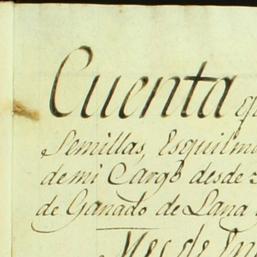 Cuenta
Semillas, Esquilmo
de mi Cargo desde
de Ganado de Lana
Mes de